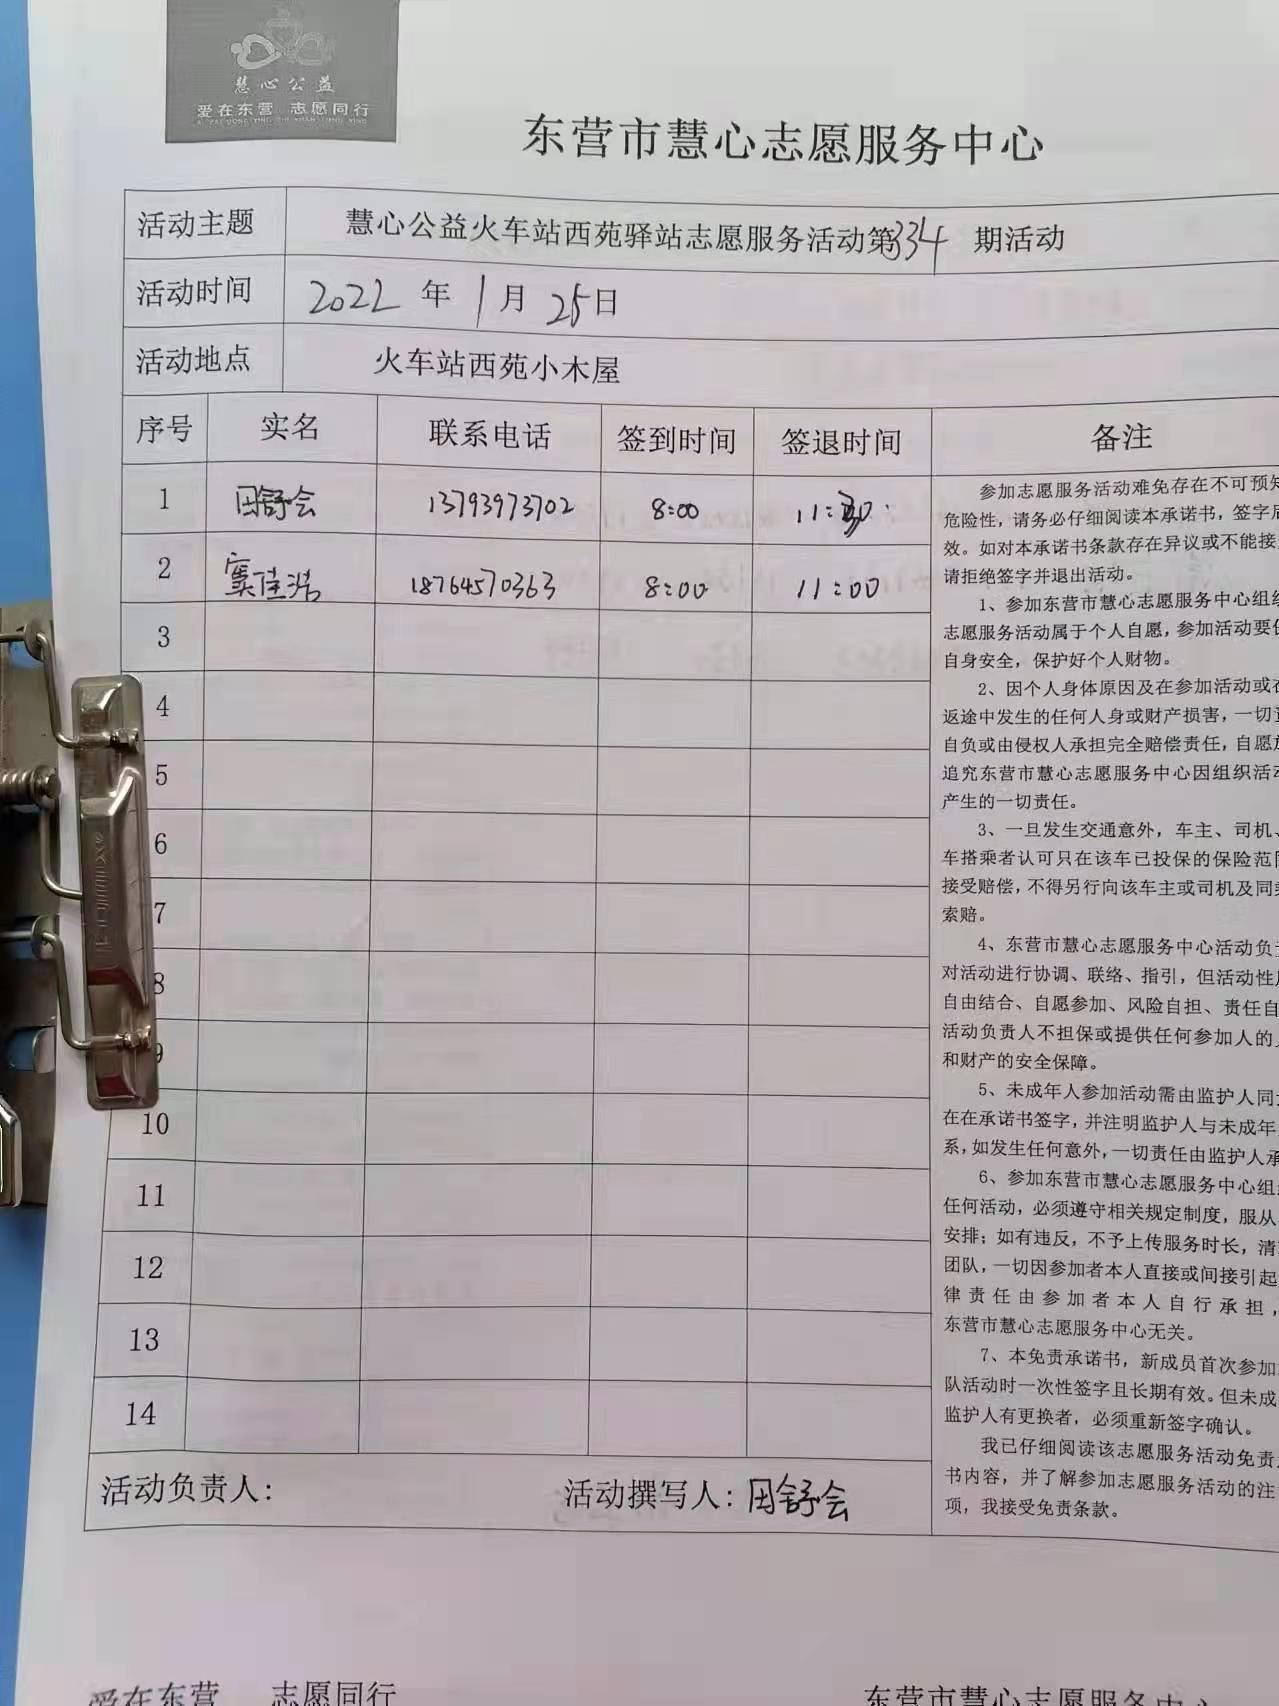 慧心公益
爱在东营 志愿同行
东营市慧心志愿服务中心
活动主题 慧心公益火车站西苑驿站志愿服务活动第334期活动
活动时间 2022年1月25日
活动地点 火车站西苑小木屋
序号 实名 联系电话 签到时间 签退时间 备注
1 田舒会 13793973702 8:00 11:
2 窦佳浩 18764570363 8:00 11:00
3
4
5
6
7
8
9
10
11
12
13
14
参加志愿服务活动难免存在不可预知
危险性，请务必仔细阅读本承诺书，签字后
效。如对本承诺书条款存在异议或不能接
请拒绝签字并退出活动。
1、参加东营市慧心志愿服务中心组织
志愿服务活动属于个人自愿，参加活动要保
自身安全，保护好个人财物。
2、因个人身体原因及在参加活动或在
返途中发生的任何人身或财产损害，一切责
自负或由侵权人承担完全赔偿责任，自愿放
追究东营市慧心志愿服务中心因组织活动
产生的一切责任。
3、一旦发生交通意外，车主、司机、
车搭乘者认可只在该车已投保的保险范围
接受赔偿，不得另行向该车主或司机及同乘
索赔。
4、东营市慧心志愿服务中心活动负责
对活动进行协调、联络、指引，但活动性质
自由结合、自愿参加、风险自担、责任自
活动负责人不担保或提供任何参加人的人
和财产的安全保障。
5、未成年人参加活动需由监护人同意
在在承诺书签字，并注明监护人与未成年
系，如发生任何意外，一切责任由监护人承
6、参加东营市慧心志愿服务中心组织
任何活动，必须遵守相关规定制度，服从
安排；如有违反，不予上传服务时长，清
团队，一切因参加者本人直接或间接引起
律责任由参加者本人自行承担，
东营市慧心志愿服务中心无关。
7、本免责承诺书，新成员首次参加
队活动时一次性签字且长期有效。但未成
监护人有更换者，必须重新签字确认。
我已仔细阅读该志愿服务活动免责
书内容，并了解参加志愿服务活动的注
项，我接受免责条款。
活动负责人： 活动撰写人：田舒会
爱在东营 志愿同行 东营市慧心志愿服务中心